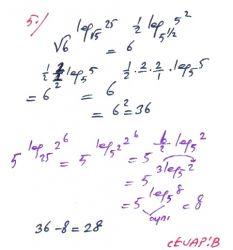 5./
√6^(log_√5 25) = 6^(½ log_(5^½) 5²)
= 6^(½·2/(½) log_5 5) = 6^(½·2·2/1·log_5 5)
= 6² = 36
5^(log_25 2⁶) = 5^(log_(5²) 2⁶) = 5^(6/2·log_5 2)
= 5^(3log_5 2)
= 5^(log_5 8) = 8
aynı
36-8=28
CEVAP:B